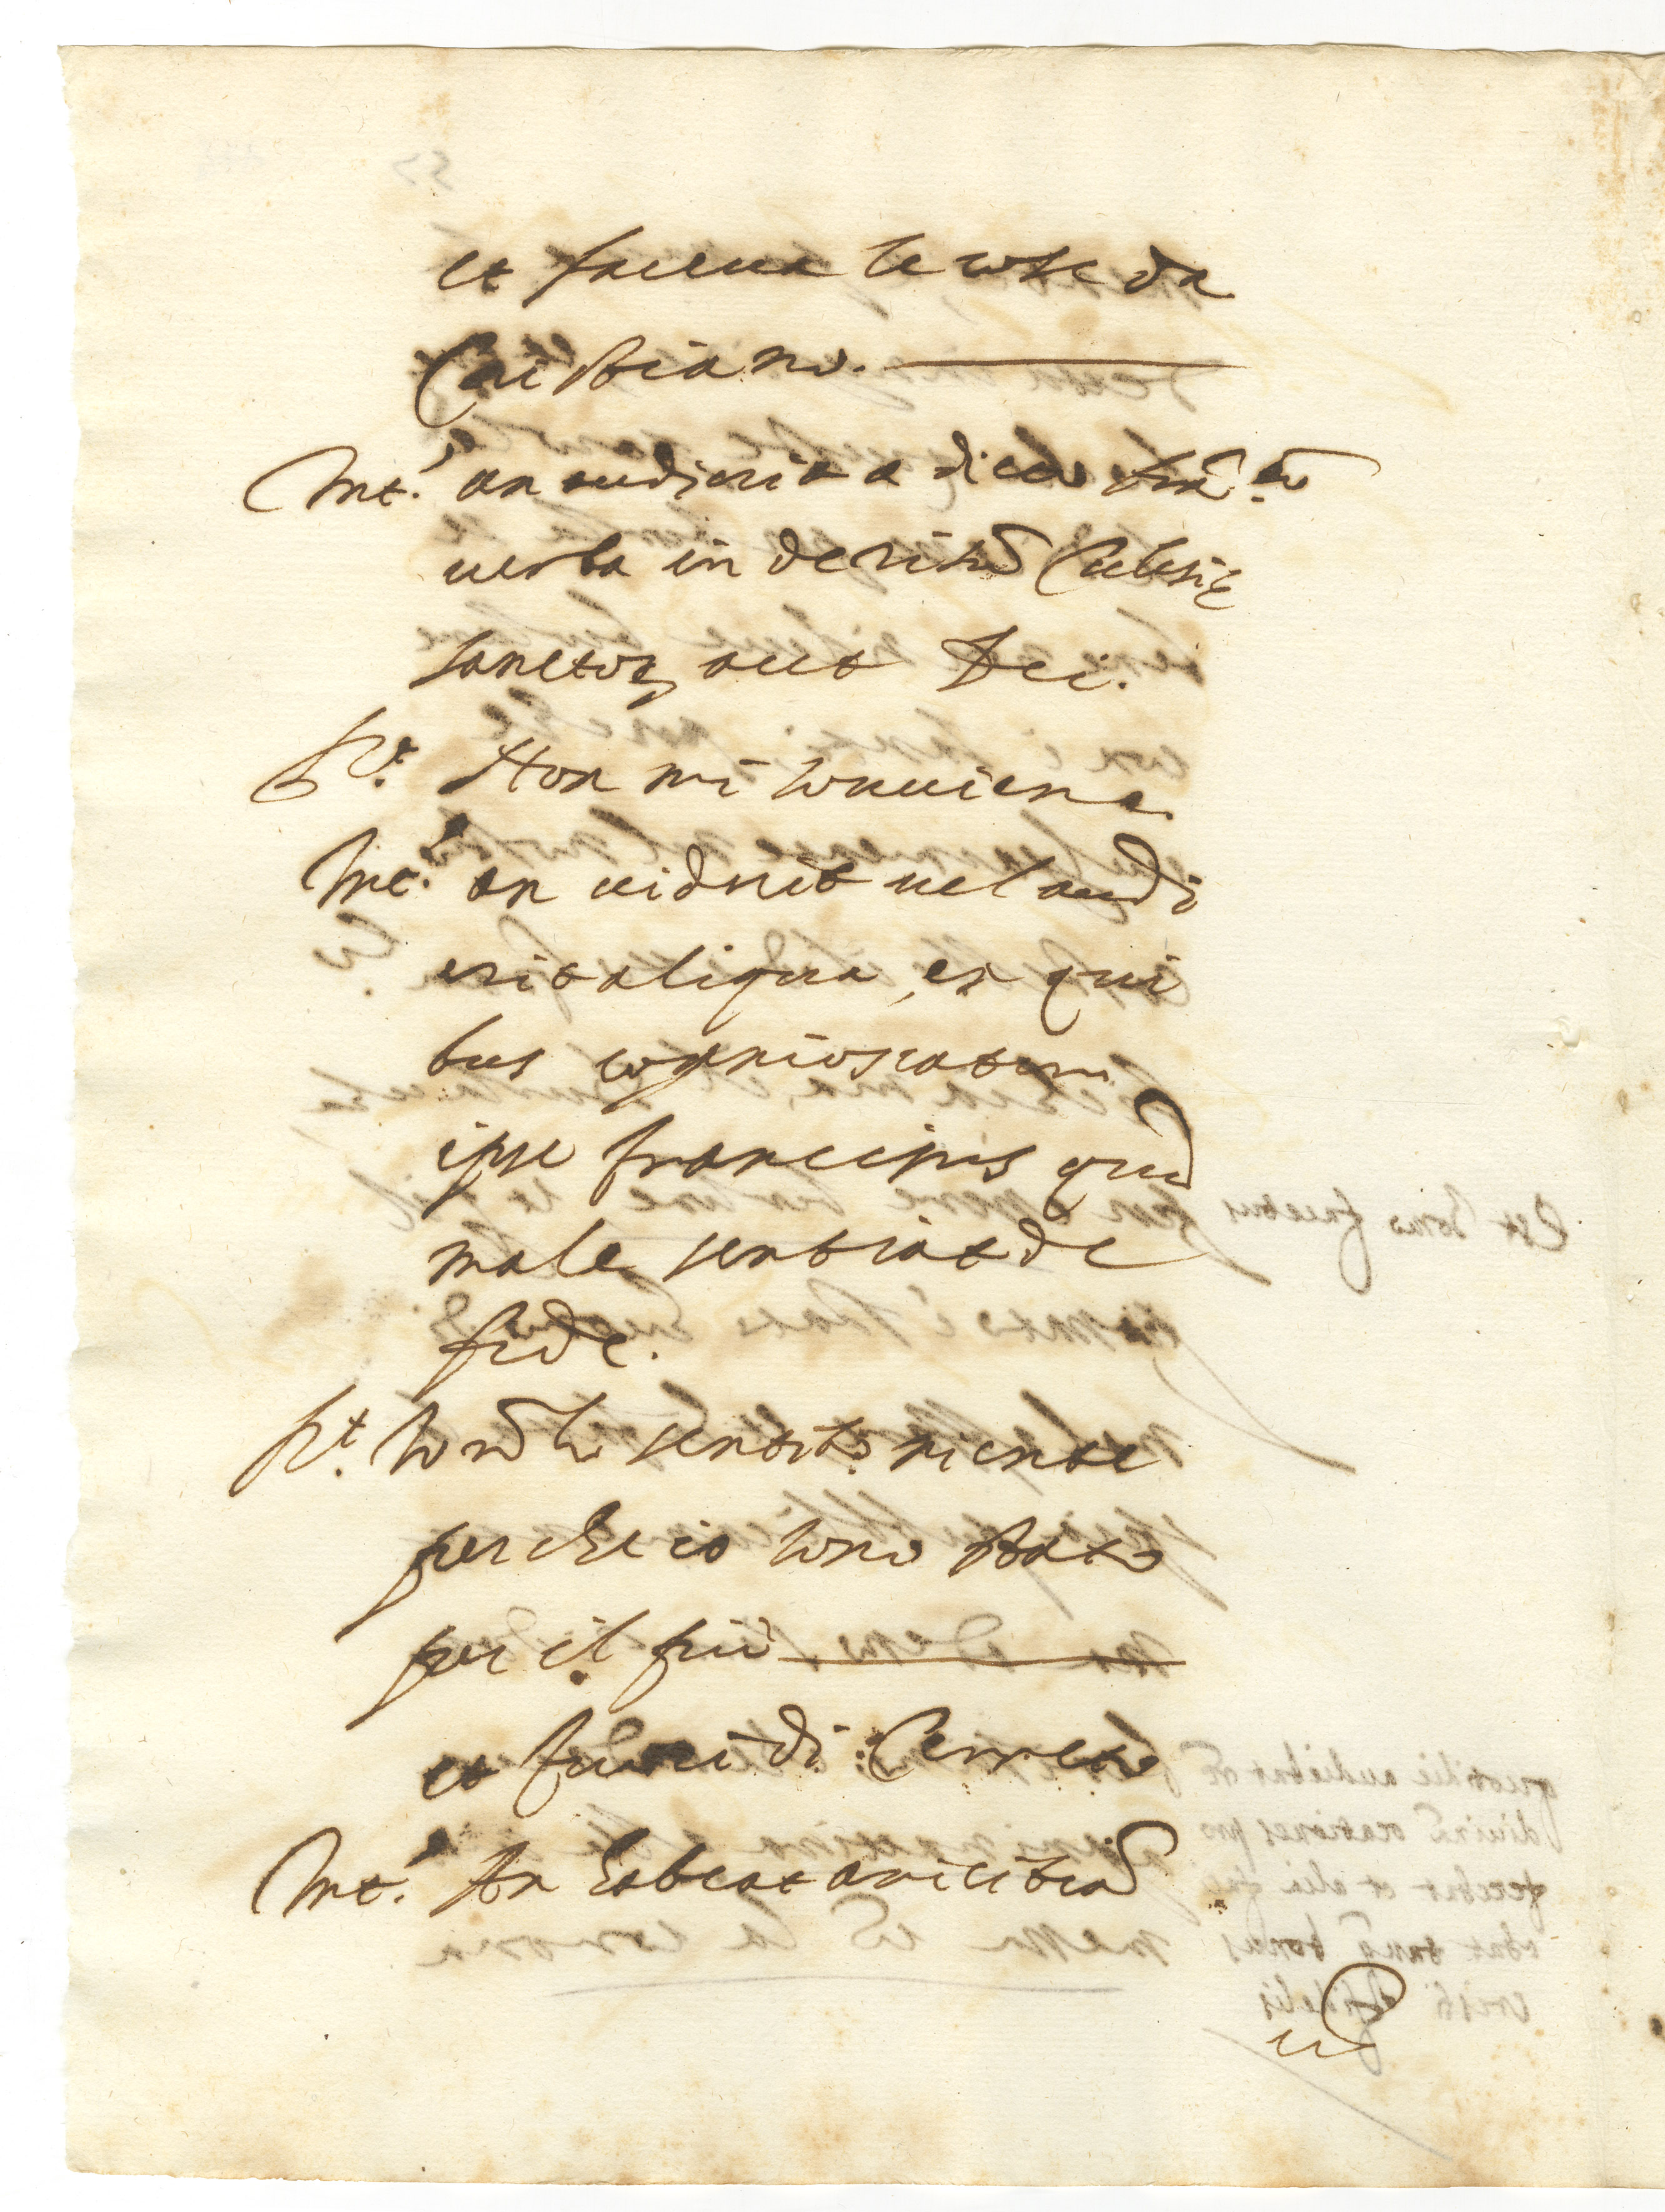 et faceua le cose da
Cristiano.
Int.s an audierit a dicto Fran.co
uerba in derisum Ecclesię
sanctor aut Dei.
R.t Non mi souuiene.
Int.s an uiderit uel audi
erit aliqua, ex qui
bus cognioscatur
ipse Franciscus quod
male sentiat de
fide.
R.t Io nō ho sentito niente
perche io sono stato
per il più
et fuori di Cerreto
Int.s An habeat amicitiam
cū